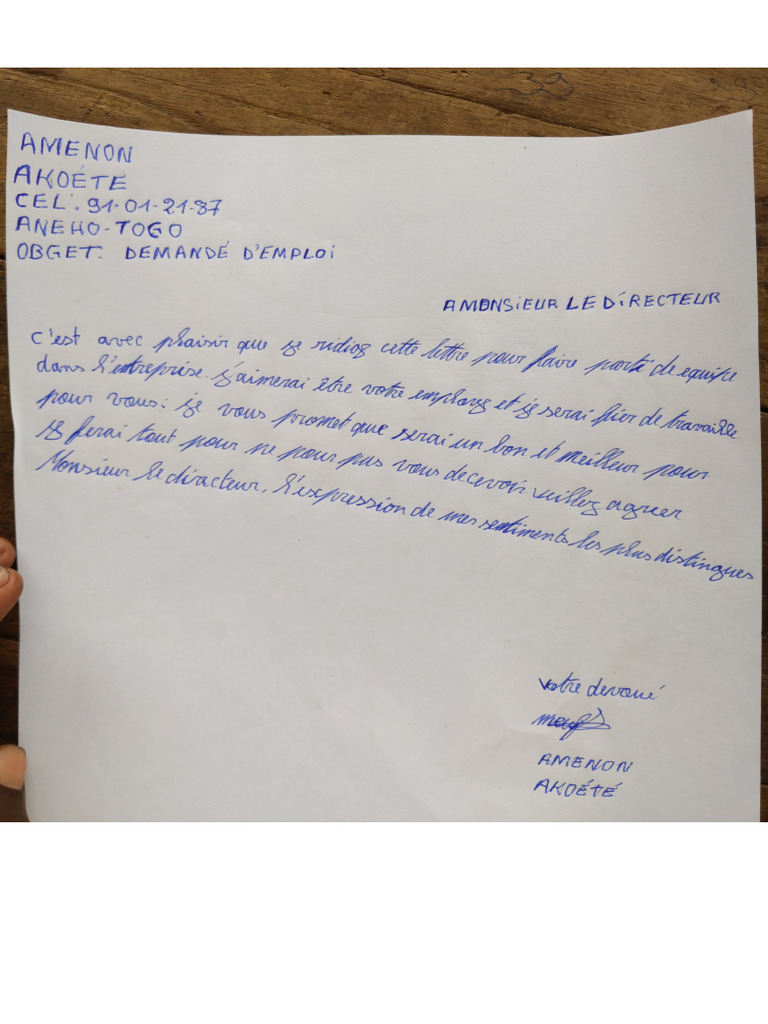 AMENON
AKOÉTÉ
CEL: 91-01-21-87
ANEHO-TOGO
OBGET: DEMANDÉ D'EMPLOI
A MONSIEUR LE DIRECTEUR
c'est avec plaisir que je cette lettre pour faire parti de equipe
dans l'entreprise. j'aimerai être votre employz et je serai fier de travaille
pour vous: je vous promet que serai un bon et meilleur pour
je ferai tout pour ne pour pas vous decevoir vuillez agreer
Monsieur le diracteur, l'expression de mes sentiments les plus distingues
votre devoué
AMENON
AKOÉTÉ